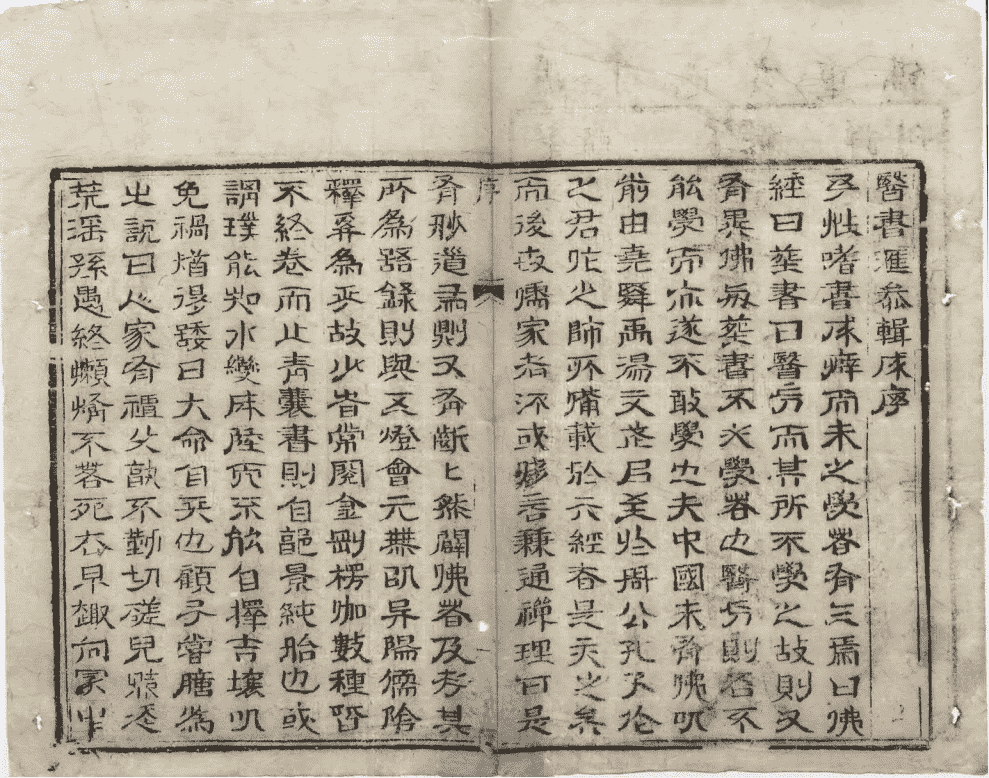 醫書滙叅輯成序
予性嗜書成癖而未之學者有三焉曰佛
經曰葬書曰醫方而其所不學之故則又
有異佛與葬書不必學者也醫方則若不
能學而亦遂不敢學也夫中國未有佛以
前由堯舜禹湯文武以至於周公孔子作
之君作之師所備載於六經者是天之
而後世儒家者流或言兼通禪理曰是
序
有妙道焉則又有斷〻然闢佛者及考其
所為語錄則與五燈會元無以异陽儒陰
釋奚為乎故少時常閱金剛楞伽數種皆
不終卷而止青囊書則自郭景純胎也或
謂璞能知水變成陸而不能自擇吉壤以
免禍猶得諉曰大命自天也顧予嘗臆為
之說曰人家有父訓不勤切磋兒
荒淫孫愚終懶惰不若死亦早趨向冢中